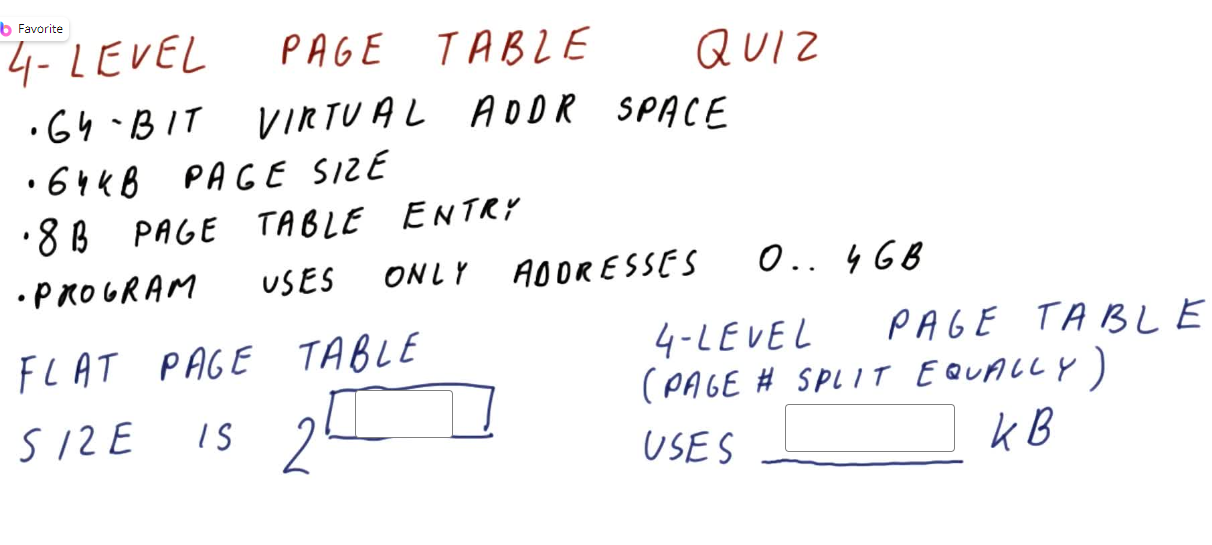 Favorite
4-LEVEL PAGE TABLE QUIZ
• 64-BIT VIRTUAL ADDR SPACE
• 64KB PAGE SIZE
• 8B PAGE TABLE ENTRY
• PROGRAM USES ONLY ADDRESSES 0.. 4GB
FLAT PAGE TABLE
SIZE IS 2
4-LEVEL PAGE TABLE
(PAGE # SPLIT EQUALLY)
USES kB